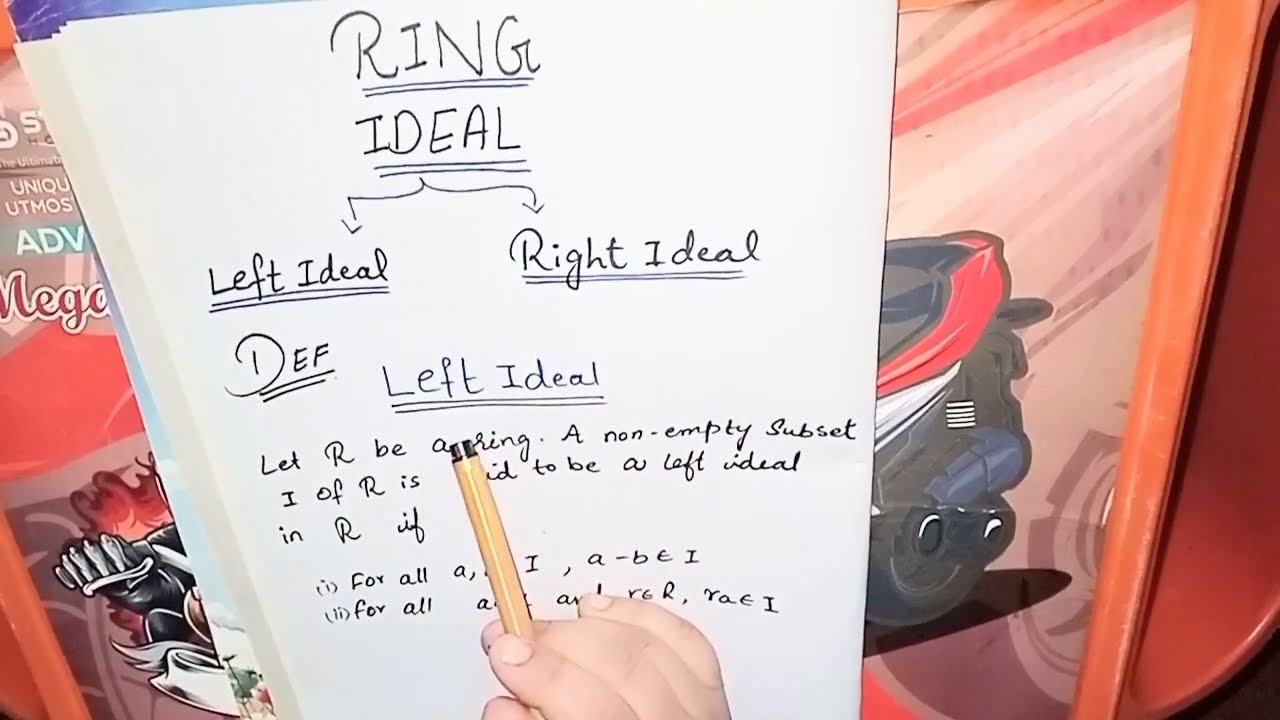 RING
IDEAL
Left Ideal
Right Ideal
DEF
Left Ideal
Let R be a ring. A non-empty Subset
I of R is to be a left ideal
in R if
(i) For all a, I , a-b∈ I
(ii) for all a and r∈R, ra∈ I
UNIQU
UTMOS
ADV
Mega